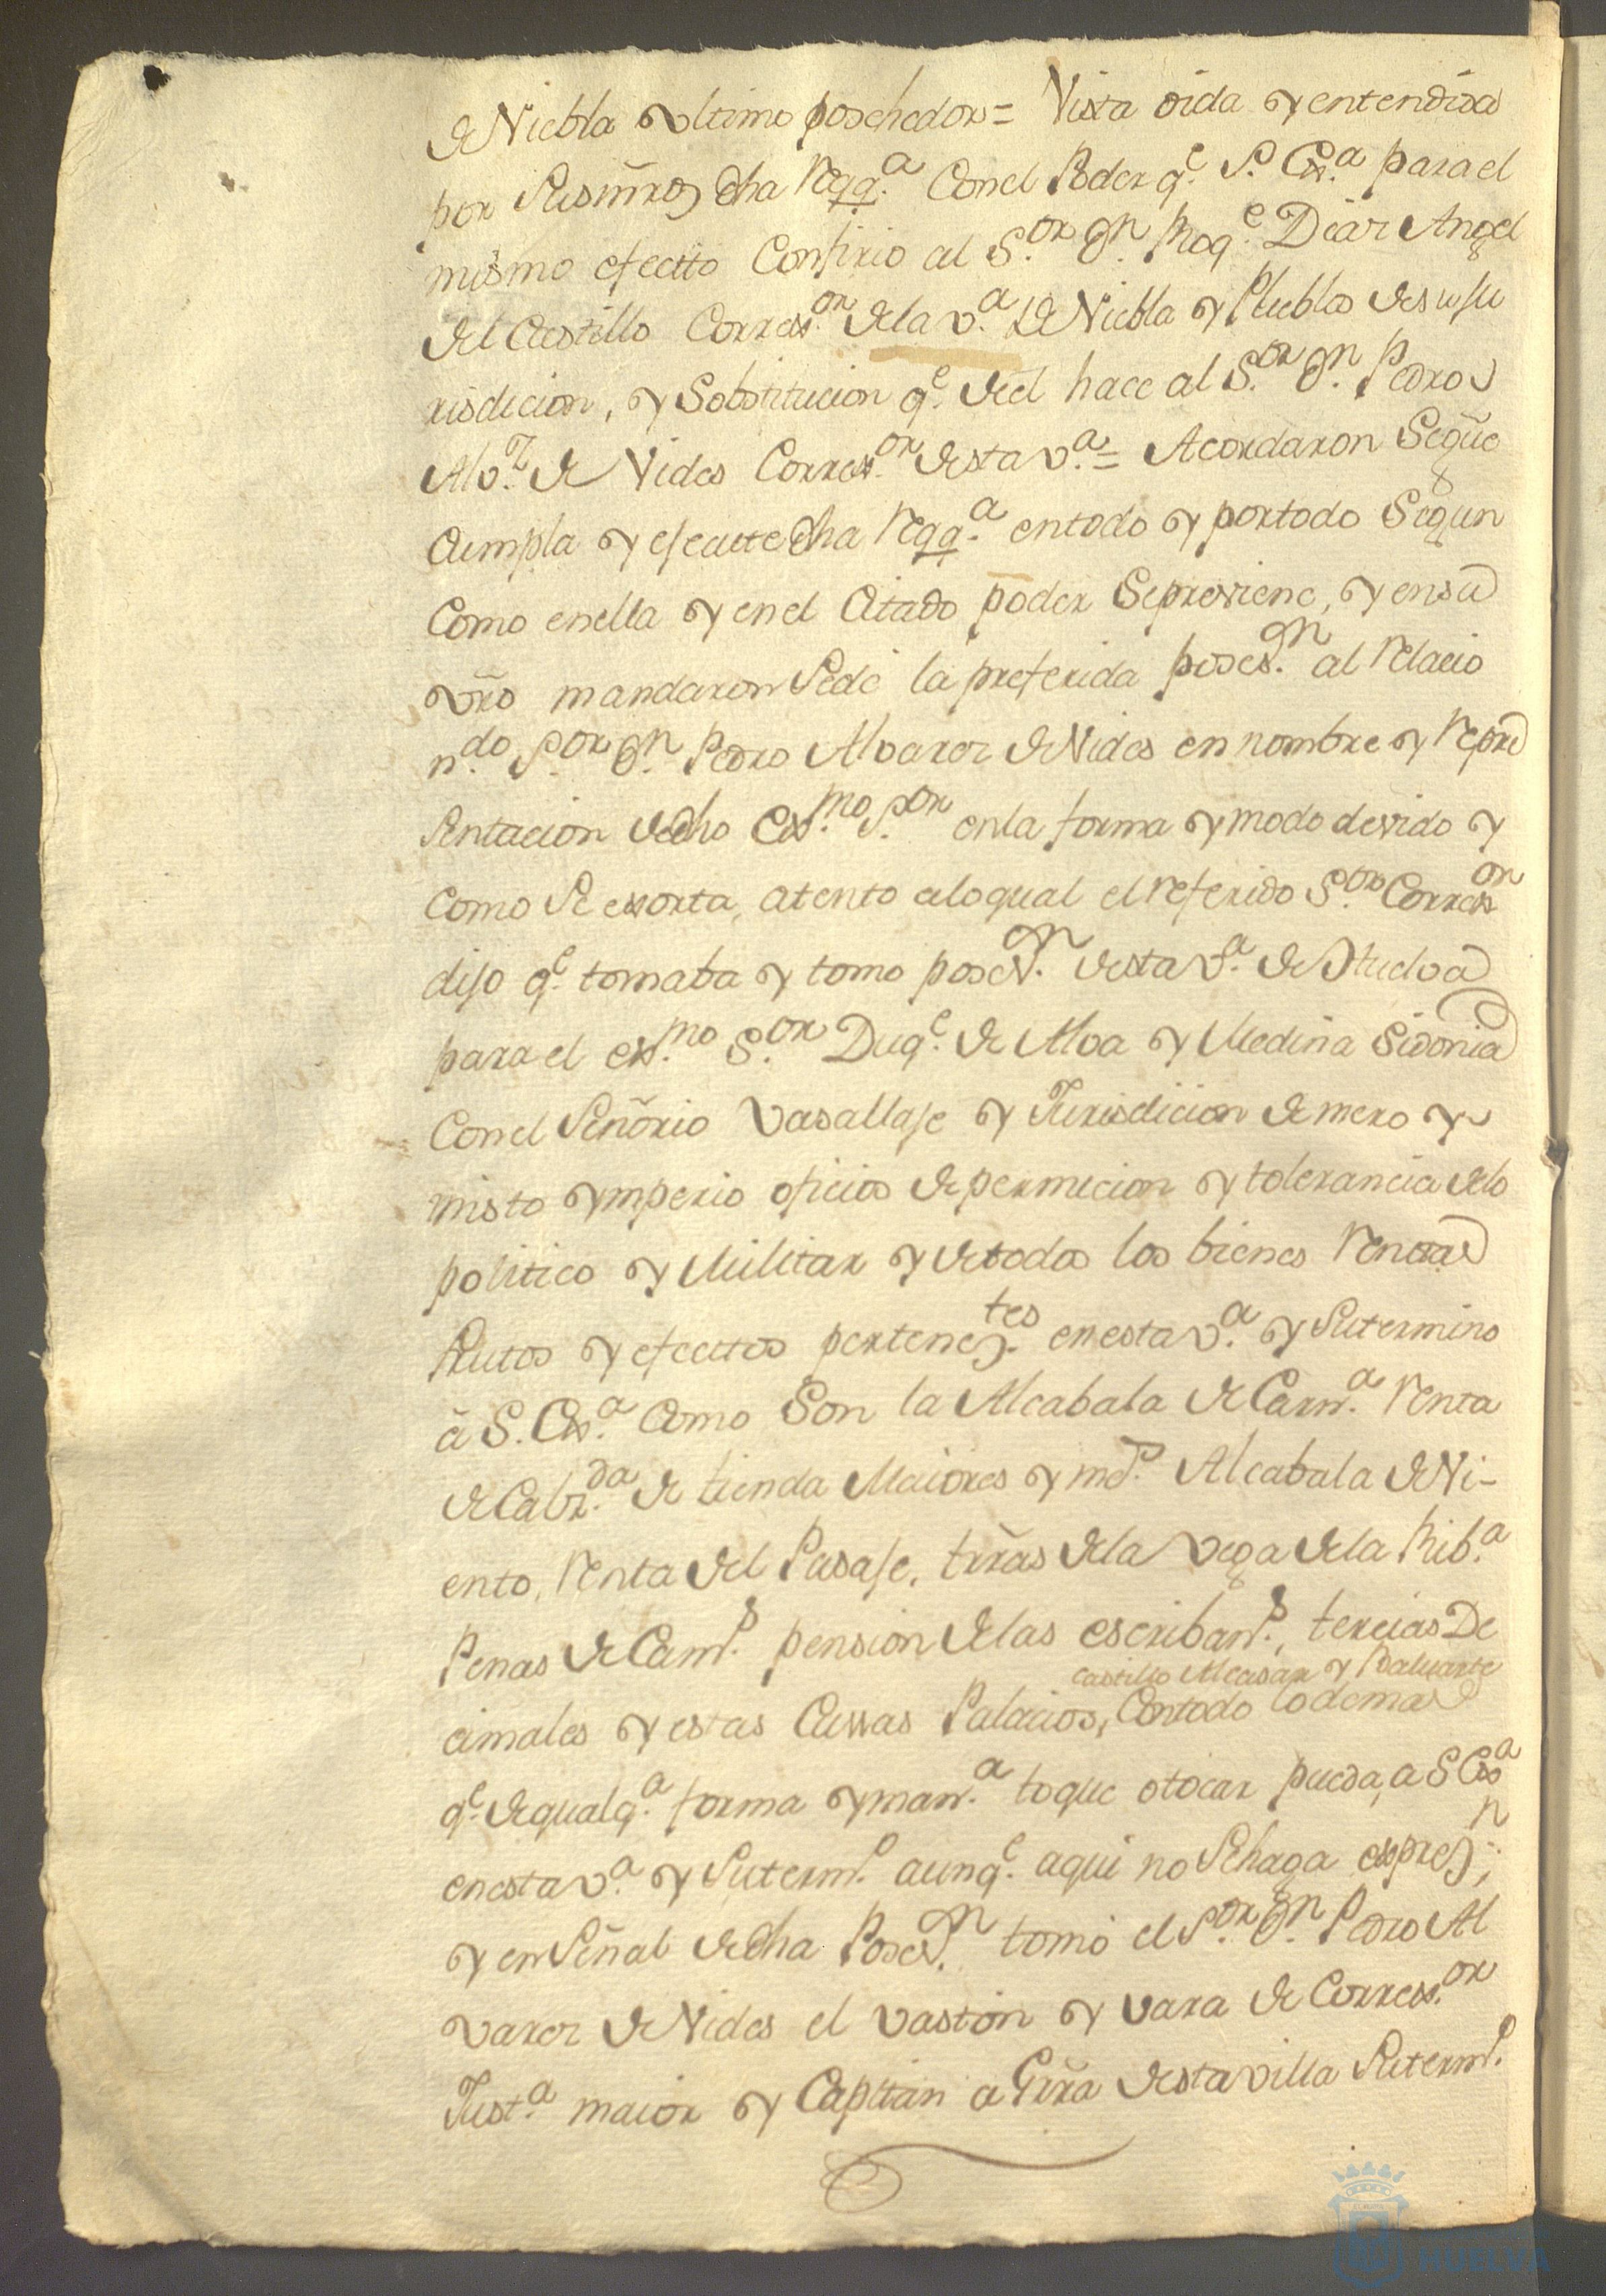 de Niebla vltimo poschedor = Vista oida y entendida
por Susmr̃es dha Reqq.ª Conel Poder q.e S. Ex.ª para el
mismo efectto Confirio al S.or D.n Roq.e Diaz Angel
del Castillo Correx.or dela v.ª de Niebla y Pueblos desuju
risdicion, y Sobstitucion q.e deel hace al S.or D.n Pedro
Alv.z de Vides Correx.or desta v.ª = Acordaron Seg̃ue
Cumpla y ejecute dha Reqq.ª entodo y portodo Segun
Como enella y enel Citado poder Sepreviene, y ensu
vr̃o mandaron Sedé la preferida poses.on al Relacio
n.do S.or D.n Pedro Alvarez de Vides en nombre y Repre
Sentacion dedho Ex.mo S.or enla forma y modo devido y
Como Se exorta, atento aloqual el referido S.or Correx.or
dijo q.e tomaba y tomo poses.on desta v.ª de Huelva
para el ex.mo S.or Duq.e de Alva y Medina Sidonia
Conel Señorio vasallaje y Jurisdicion de mero y
misto ymperio oficios de permicion y tolerancia delo
politico y Militar y detodos los bienes Rentas
frutos y efecttos pertenez.tes enesta v.ª y Sutermino
à S. Ex.ª Como Son la Alcabala de Carn.ª Renta
de Cabz.da de tienda Maiores y m.s Alcabala de Vi-
ento, Renta del Pasaje, trr̃as dela Vega dela Rib.ª
Penas de Cam.s pension delas escriban.s, tercias De
Castillo Alcasar y Baluarte
cimales y estas Cassas Palacios, Contodo lodemas
q.e dequalq.ª forma yman.ª toque otocar pueda, a S Exª
enesta v.ª y Suterm.o aunq.e aqui no Sehaga expres.n;
y en Señal dedha Poses.on tomó el S.or D.n Pedro Al
varez de Vides el vastón y vara de Correx.or
Just.ª maior y Capitan a Grr̃a desta villa Suterm.o
HUELVA